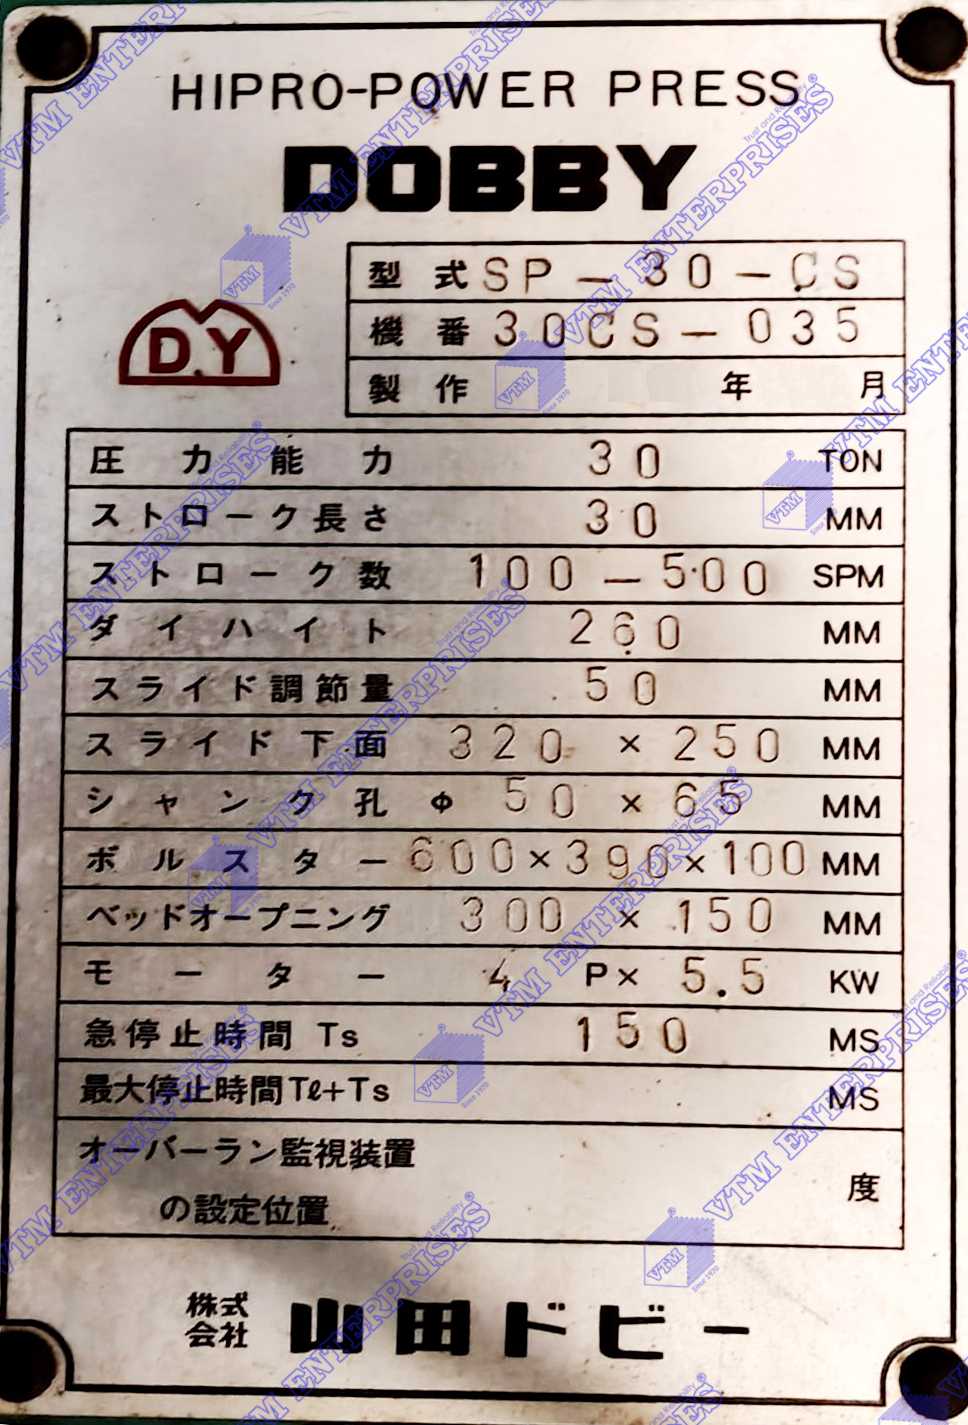 HIPRO-POWER PRESS
DOBBY
D.Y
型式 SP-30-CS
機番 30CS-035
製作 年 月
圧力能力 30 TON
ストローク長さ 30 MM
ストローク数 100-500 SPM
ダイハイト 260 MM
スライド調節量 50 MM
スライド下面 320 × 250 MM
シャンク孔 Φ 50 × 65 MM
ボルスター 600×390×100 MM
ベッドオープニング 300 × 150 MM
モーター 4 P× 5.5 KW
急停止時間 Ts 150 MS
最大停止時間Tℓ+Ts MS
オーバーラン監視装置
の設定位置 度
株式会社 山田ドビー
VTM ENTERPRISES®
Trust and Reliability
VTM
Since 1970